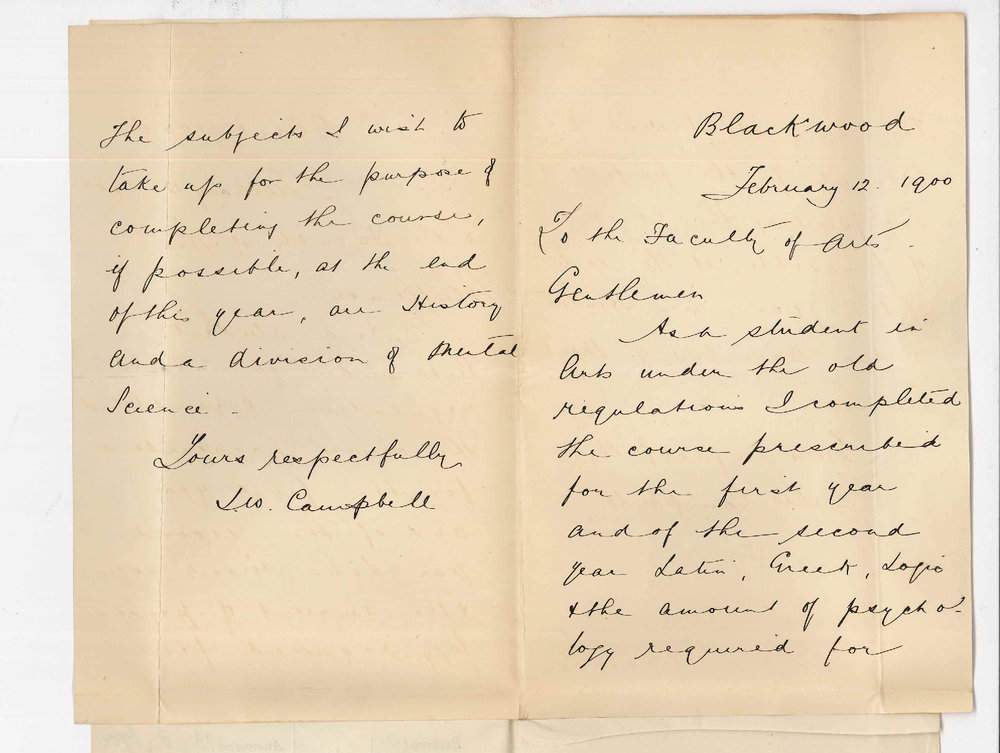 Blackwood
February 12. 1900
To the Faculty of Arts.
Gentlemen
As a student in
Arts under the old
regulations I completed
the course prescribed
for the first year
and of the second
year Latin, Greek, Logic
& the amount of psycho-
logy required for
The subjects I wish to
take up for the purpose of
completing the course,
if possible, at the end
of this year, are History
and a division of Mental
Science.
Yours respectfully
L.W. Campbell